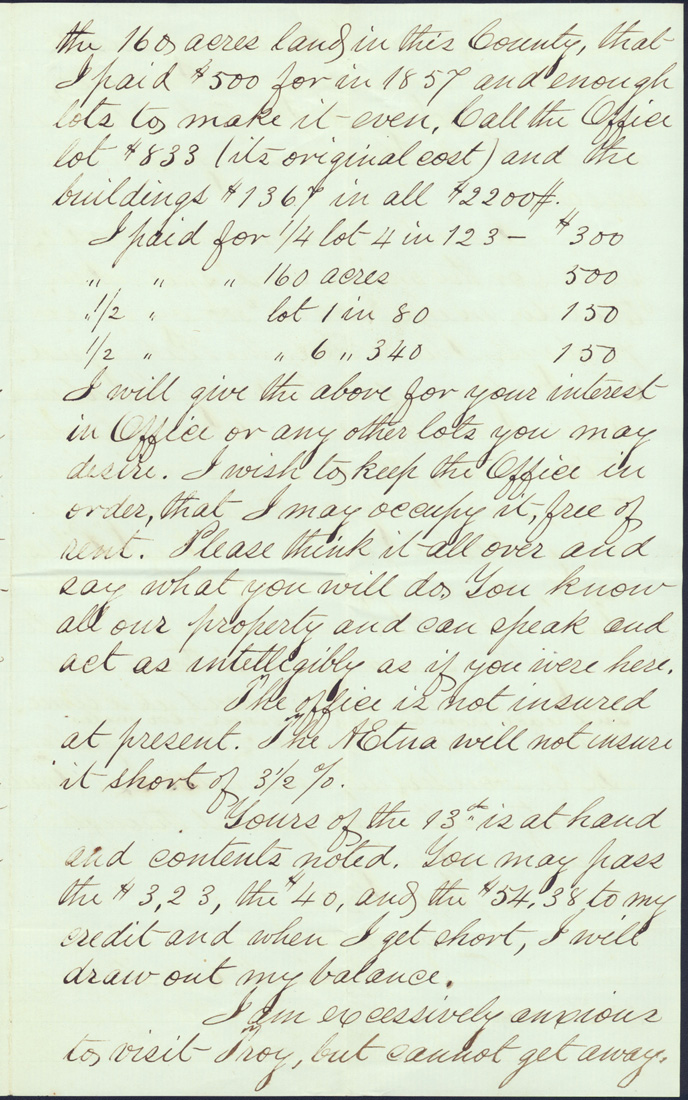 the 160 acres land in this County, that
I paid $500 for in 1857 and enough
lots to make it even. Call the Office
lot $833 (its original cost) and the
buildings $1367 in all $2200#.
I paid for 1/4 lot 4 in 123 — $300
" " " 160 acres 500
" 1/2 " lot 1 in 80 150
1/2 " " 6 " 340 150
I will give the above for your interest
in Office or any other lots you may
desire. I wish to keep the Office in
order, that I may occupy it, free of
rent. Please think it all over and
say what you will do. You know
all our property and can speak and
act as intelligibly as if you were here.
The office is not insured
at present. The AEtna will not insure
it short of 3 1/2 %.
Yours of the 13th is at hand
and contents noted. You may pass
the $3,23, the $40, and the $54.38 to my
credit and when I get short, I will
draw out my balance.
I am excessively anxious
to visit Troy, but cannot get away.